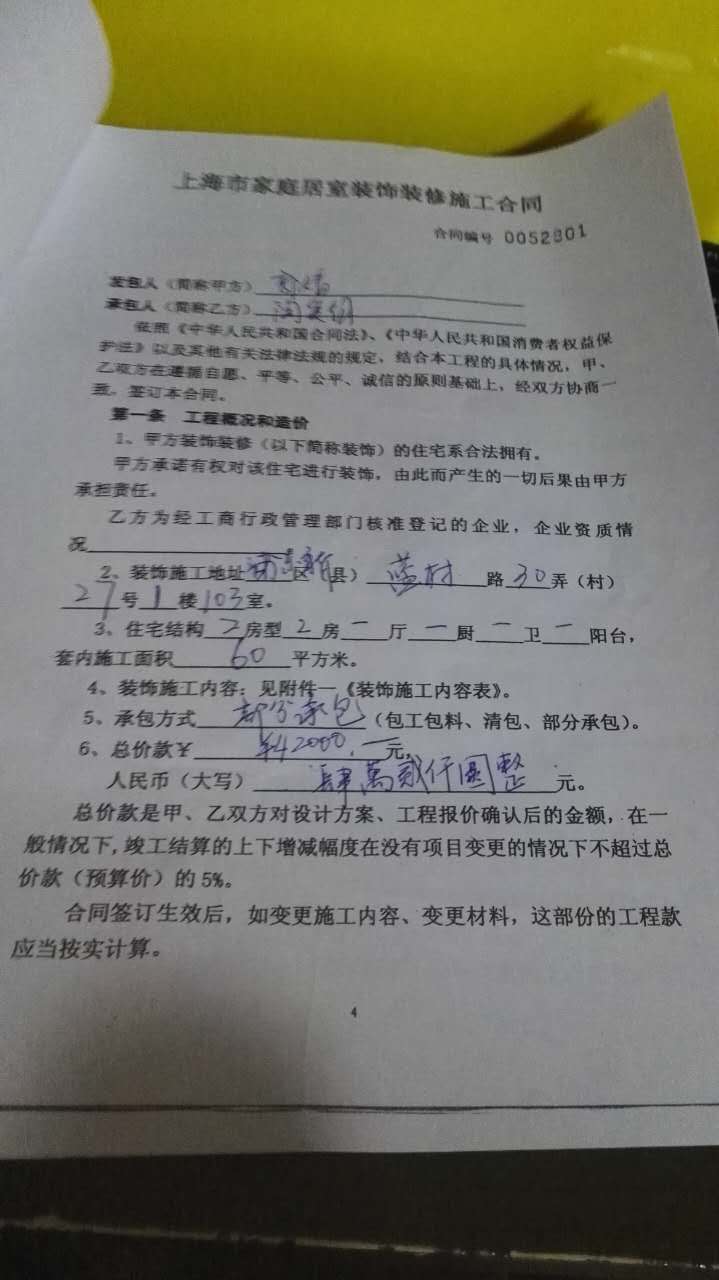 上海市家庭居室装饰装修施工合同
合同编号 0052801
发包人（简称甲方）
承包人（简称乙方）
依照《中华人民共和国合同法》、《中华人民共和国消费者权益保
护法》以及其他有关法律法规的规定，结合本工程的具体情况，甲、
乙双方在遵循自愿、平等、公平、诚信的原则基础上，经双方协商一
致，签订本合同。
第一条 工程概况和造价
1、甲方装饰装修（以下简称装饰）的住宅系合法拥有。
甲方承诺有权对该住宅进行装饰，由此而产生的一切后果由甲方
承担责任。
乙方为经工商行政管理部门核准登记的企业，企业资质情
况
2、装饰施工地址浦东新区（县）蓝村路30弄（村）
27号1楼103室。
3、住宅结构2房型2房一厅一厨一卫一阳台，
套内施工面积60平方米。
4、装饰施工内容：见附件一《装饰施工内容表》。
5、承包方式部分承包（包工包料、清包、部分承包）。
6、总价款￥¥42000.一元，
人民币（大写）肆萬贰仟圆整元。
总价款是甲、乙双方对设计方案、工程报价确认后的金额，在一
般情况下,竣工结算的上下增减幅度在没有项目变更的情况下不超过总
价款（预算价）的5%。
合同签订生效后，如变更施工内容、变更材料，这部份的工程款
应当按实计算。
4